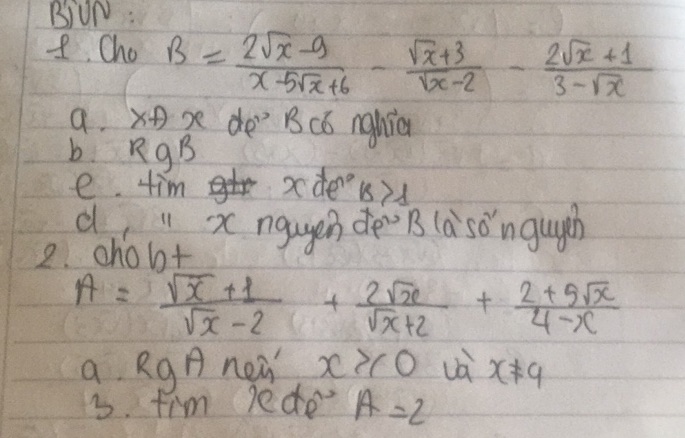 BTVN :
1. Cho B = (2√x - 9)/(x - 5√x + 6) - (√x + 3)/(√x - 2) - (2√x + 1)/(3 - √x)
a. XĐ x để B có nghĩa
b. RgB
c. tìm x để B > 1
d, " x nguyên để B là số nguyên
2. cho bt
A = (√x + 1)/(√x - 2) + (2√x)/(√x + 2) + (2 + 5√x)/(4 - x)
a. RgA nếu x ≥ 0 và x ≠ 4
b. tìm x để A = 2